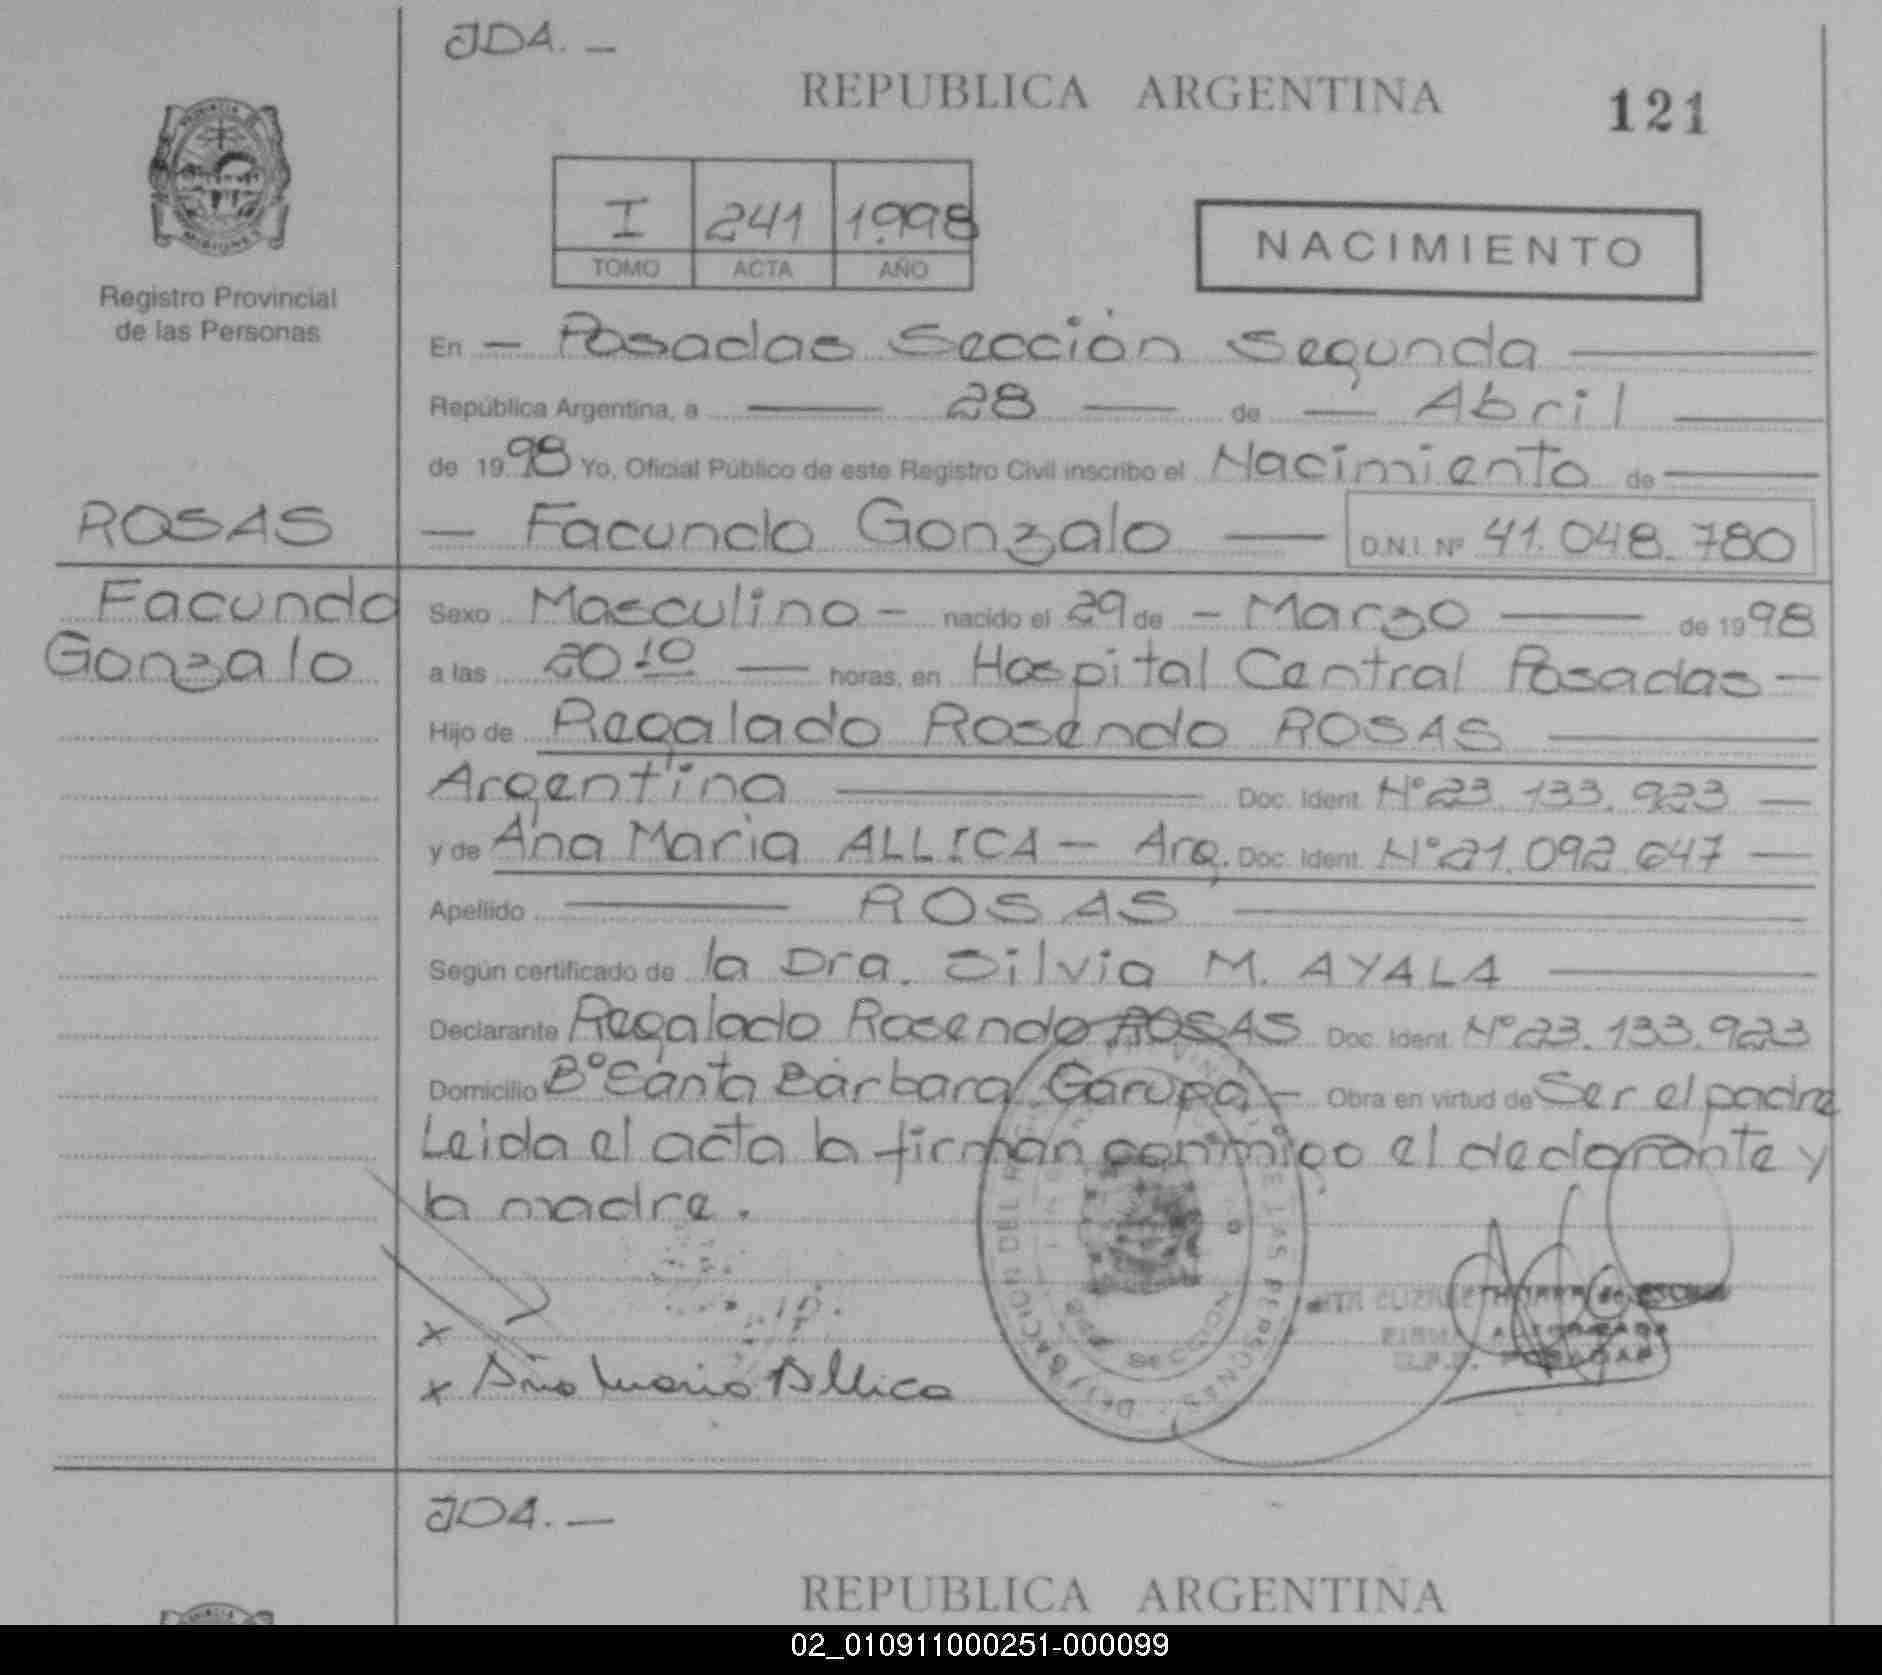 JDA. —
REPUBLICA ARGENTINA
121
I 241 1998
TOMO ACTA AÑO
NACIMIENTO
Registro Provincial
de las Personas
En — Posadas Sección Segunda
República Argentina, a 28 de Abril
de 1998 Yo, Oficial Público de este Registro Civil inscribo el Nacimiento de
ROSAS
— Facundo Gonzalo — D.N.I. Nº 41.048.780
Facundo
Gonzalo
Sexo Masculino — nacido el 29 de — Marzo — de 1998
a las 20 10 — horas, en Hospital Central Posadas —
Hijo de Regalado Rosendo ROSAS —
Argentina — Doc. Ident. Nº 23.133.923 —
y de Ana Maria ALLICA — Arg. Doc. Ident. Nº 21.092.647 —
Apellido — ROSAS —
Según certificado de la Dra. Silvia M. AYALA —
Declarante Regalado Rosendo ROSAS Doc. Ident. Nº 23.133.923
Domicilio Bº Santa Bárbara Garupa — Obra en virtud de Ser el padre
Leida el acta la firman conmigo el declarante y
la madre.
x
x Ana Maria Allica
JDA. —
REPUBLICA ARGENTINA
02_010911000251-000099